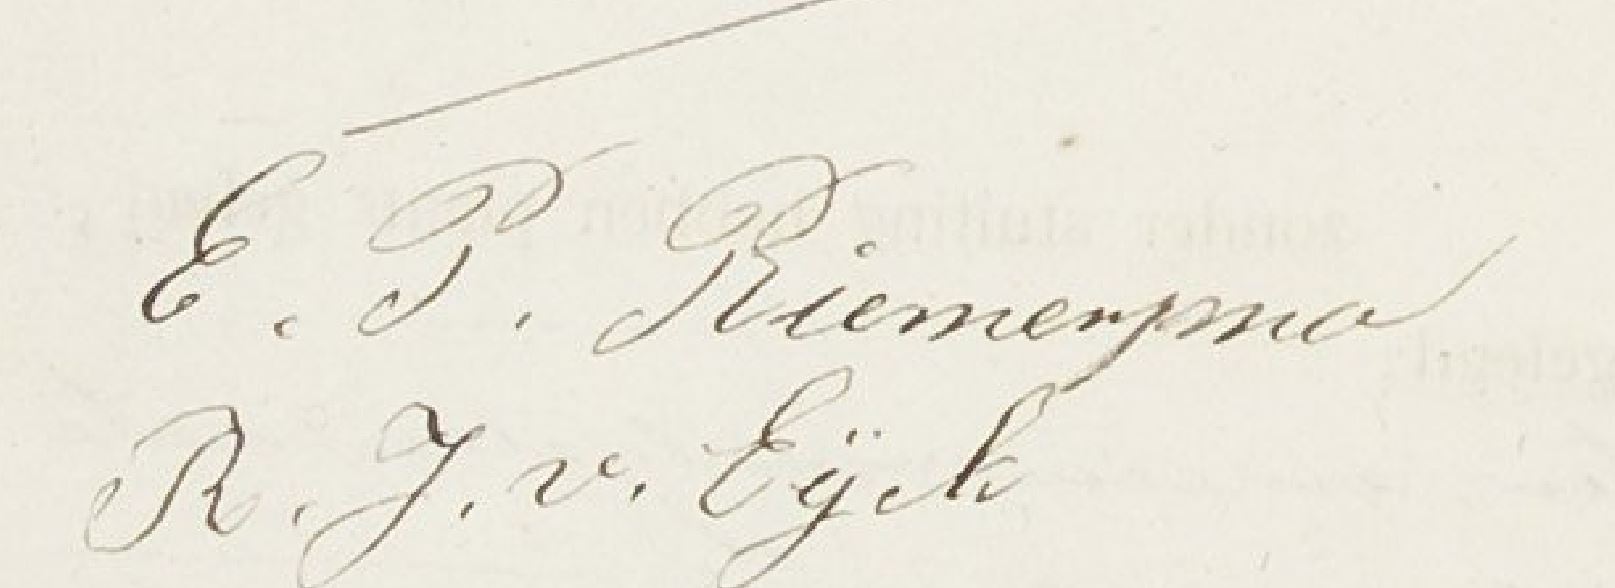 E. P. Riemersma
R. J. v. Eÿck